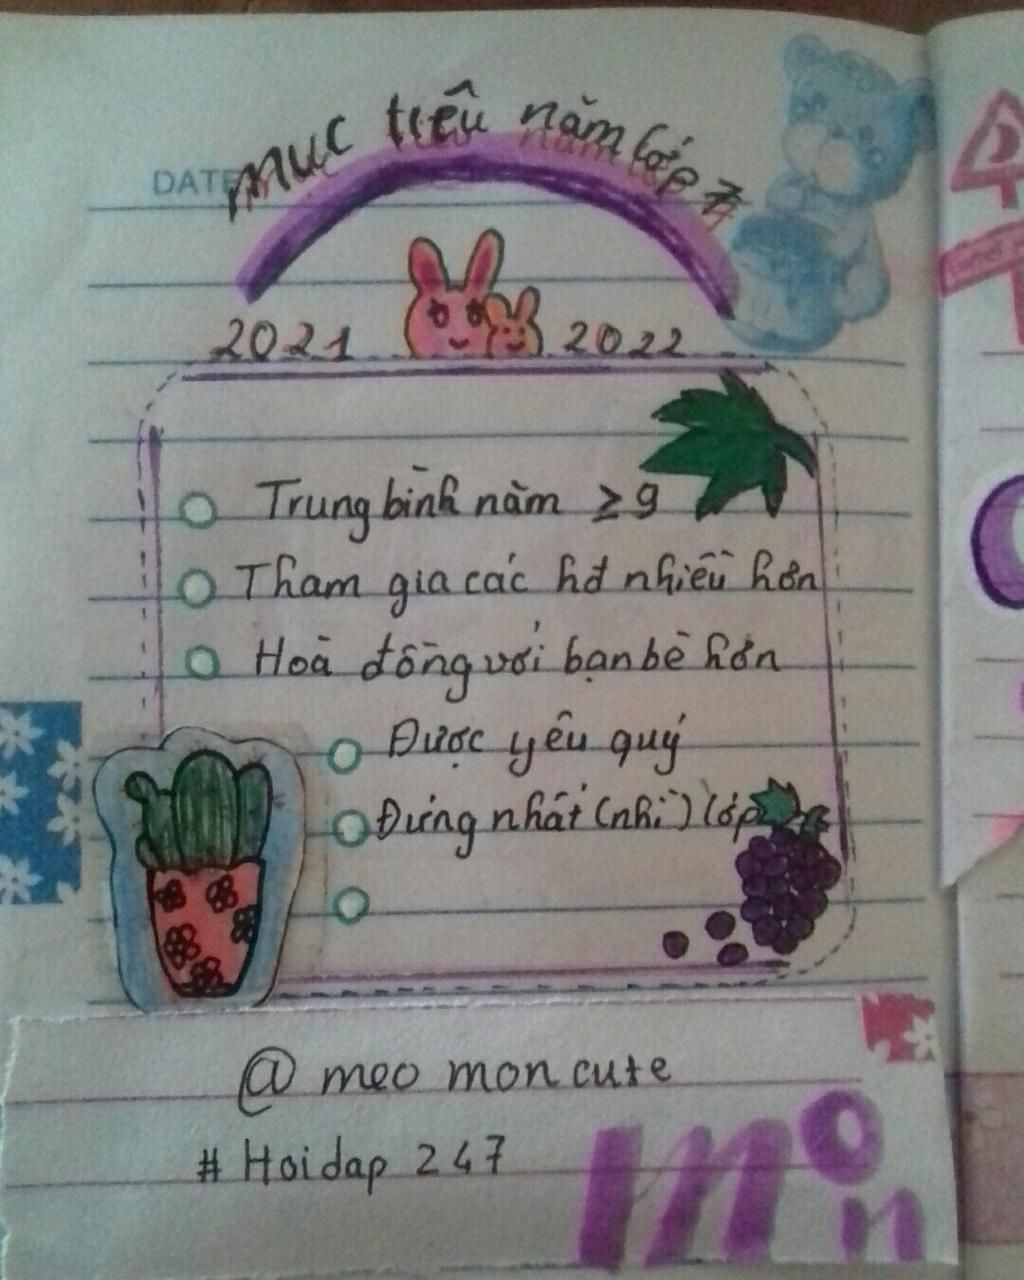 DATE
mục tiêu năm lớp 7
2021 2022
Trung bình năm ≥ 9
Tham gia các hđ nhiều hơn
Hoà đồng với bạn bè hơn
Được yêu quý
Đứng nhất (nhì) lớp
@ meo mon cute
# Hoidap 247
mon